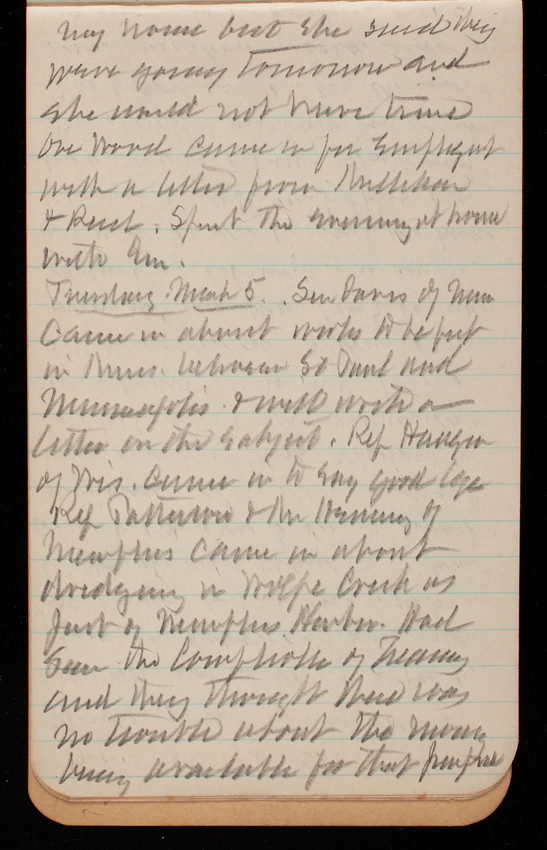 my house but she said they
were going tomorrow and
she would not have time
Wood came in for Employt
with a letter from
& Reed. Spent the evening at home
with Em.
Tuesday March 5. Sen Davis of Minn
came in about works to be put
in between St Paul and
Minneapolis & will write a
letter on the subject. Rep Haugen
of Wis. came in to say good bye
Rep Patterson & Mr of
Memphis came in about
dredging in Wolfe Creek as
part of Memphis Harbor. Had
seen the Comptroller of Treasury
and they thought there was
no trouble about the money
being available for that purpose